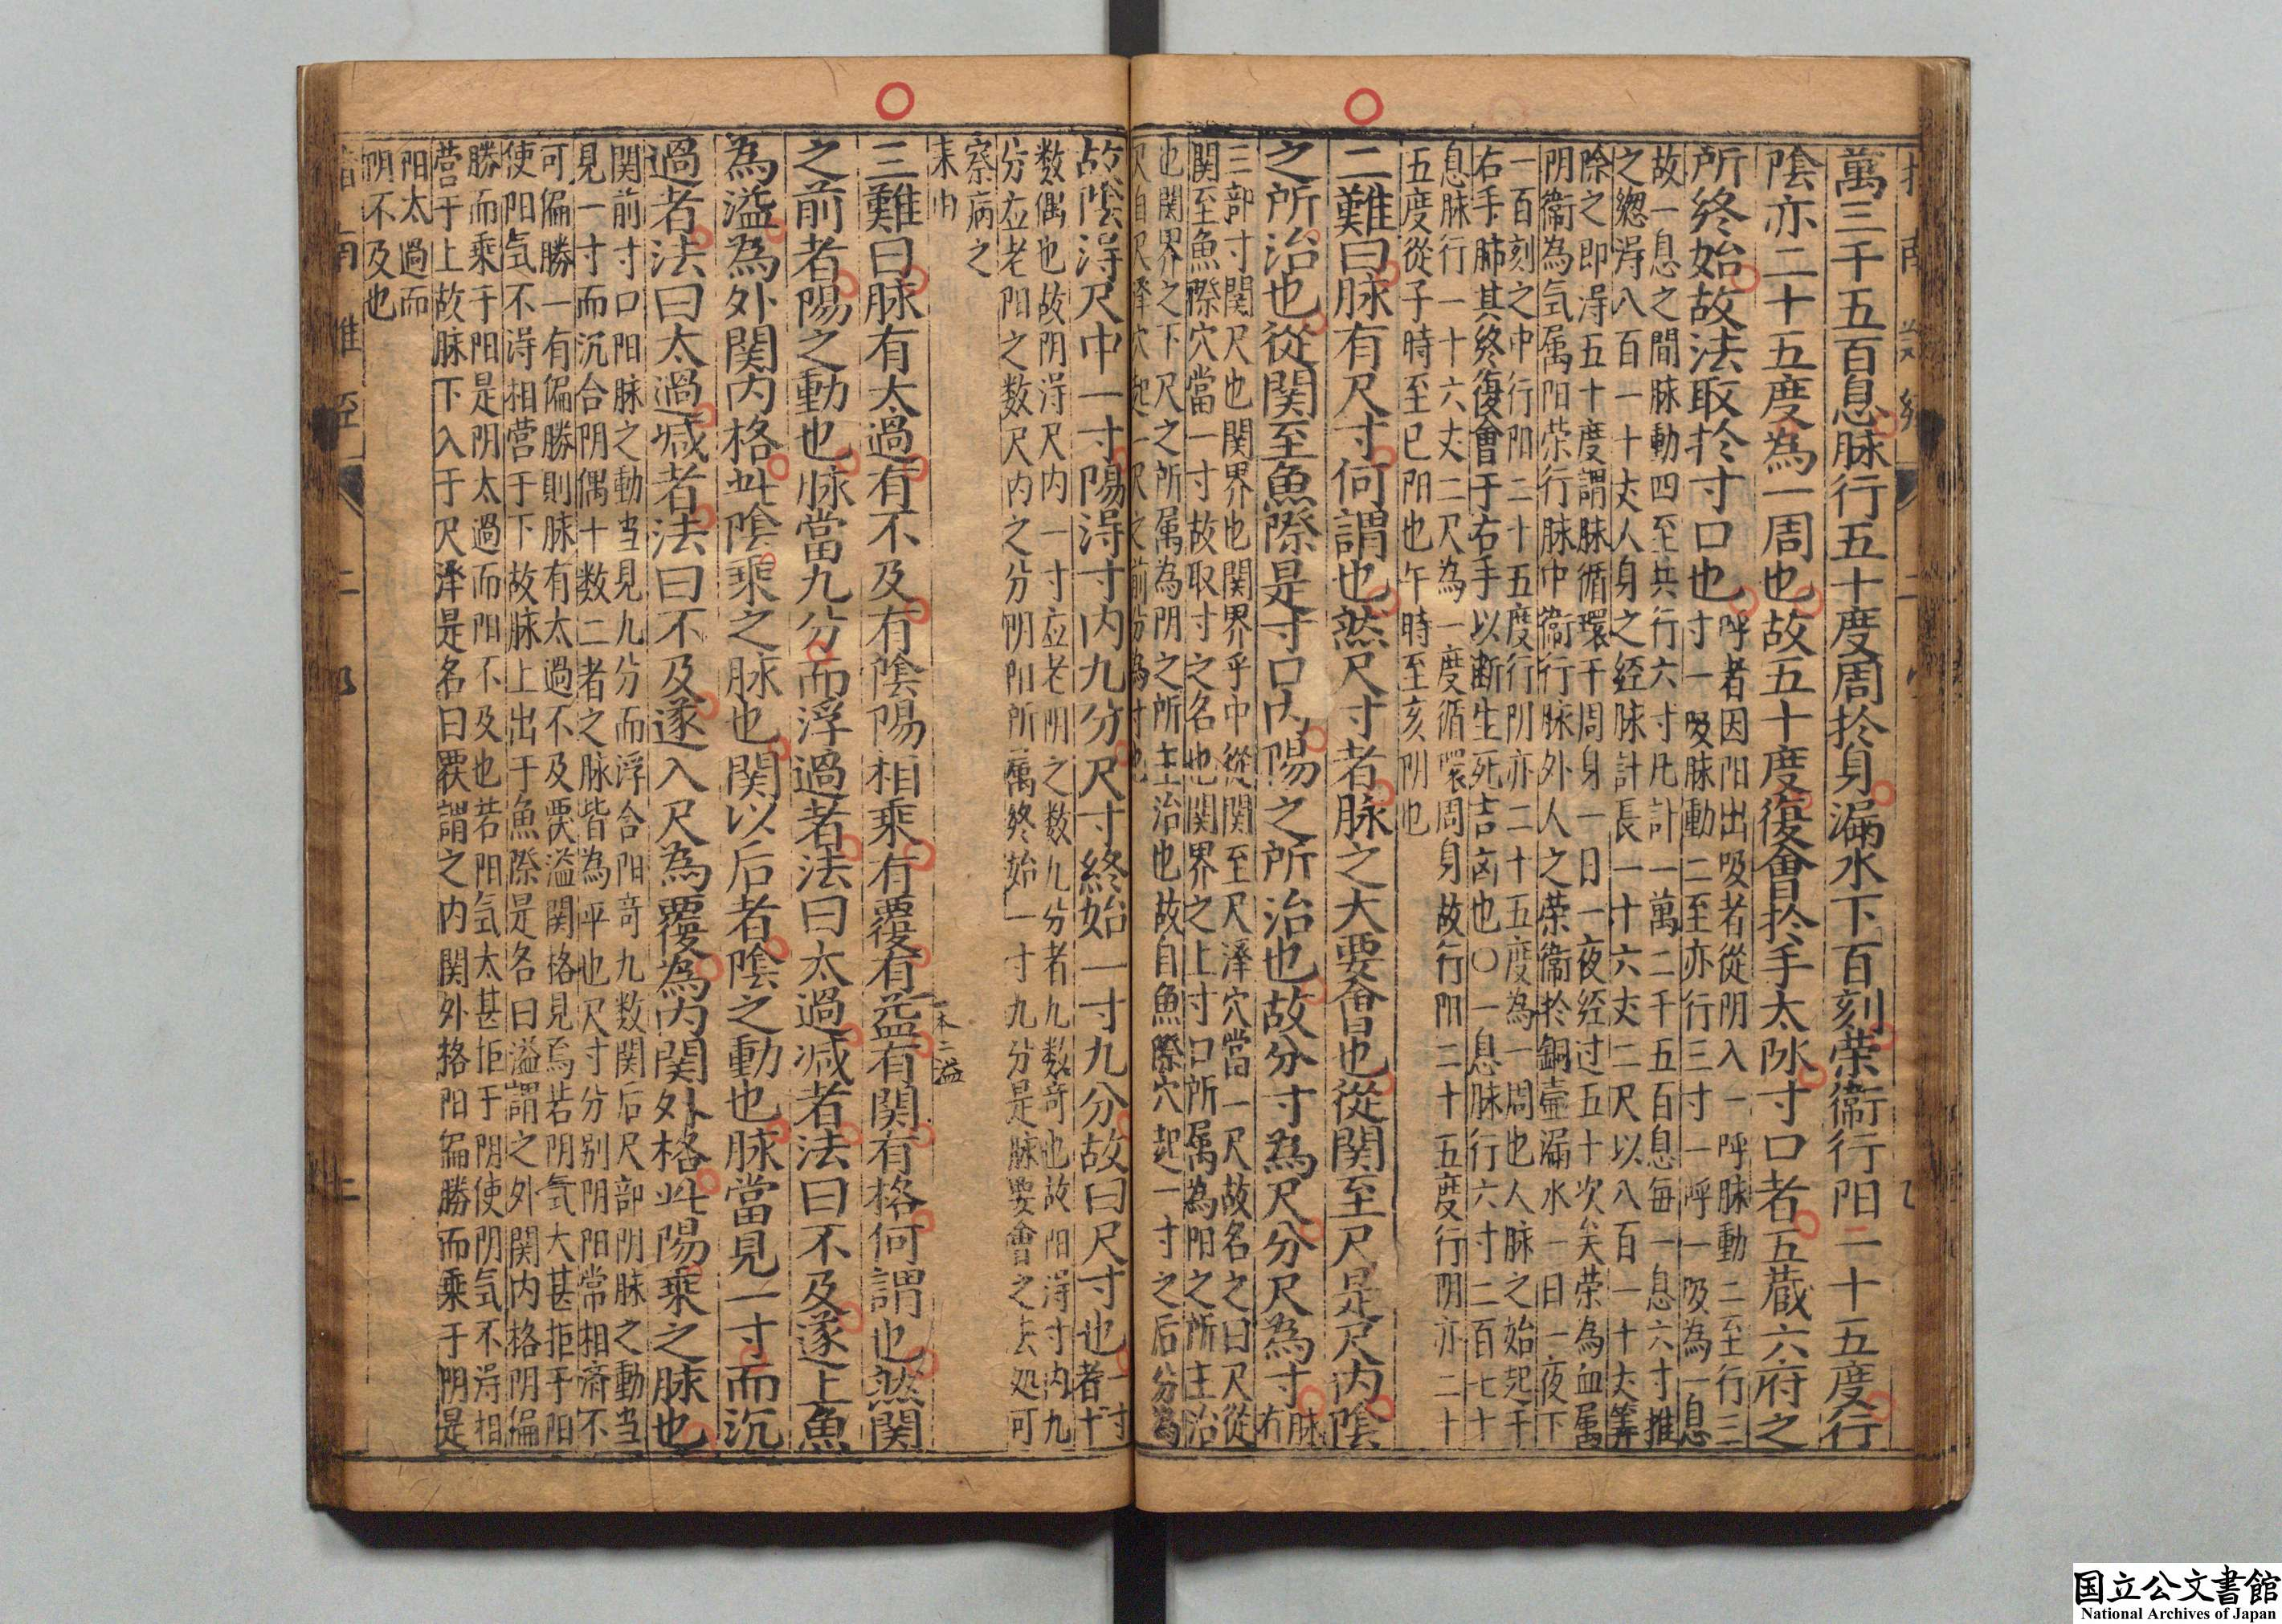 萬三千五百息脉行五十度周於身漏水下百刻荣衞行阳二十五度行
陰亦二十五度為一周也故五十度復會於手太阴寸口者五蔵六府之
所終始故法取於寸口也
呼者因阳出吸者從阴入一呼脉動二至行三
寸一吸脉動二至亦行三寸一呼一吸為一息
故一息之間脉動四至共行六寸凢計一萬二千五百息每一息六寸推
之緫淂八百一十丈人身之经脉計長一十六丈二尺以八百一十丈筭
除之即淂五十度謂脉循環于周身一日一夜经过五十次矣荣為血属
阴衞為气属阳荣行脉中衞行脉外人之荣衞於銅壷漏水一日一夜下
一百刻之中行阳二十五度行阴亦二十五度為一周也人脉之始起于
右手肺其終復會于右手以断生死吉凶也〇一息脉行六寸二百七十
息脉行一十六丈二尺為一度循環周身故行阳二十五度行阴亦二十
五度從子時至巳阳也午時至亥阴也
二難曰脉有尺寸何謂也然尺寸者脉之大要會也從関至尺是尺内陰
之所治也從関至魚際是寸口内陽之所治也故分寸為尺分尺為寸
脉有
三部寸関尺也関界也関界乎中從関至尺澤穴當一尺故名之曰尺從
関至魚際穴當一寸故取寸之名也関界之上寸口所属為阳之所主治
也関界之下尺之所属為阴之所主治也故自魚際穴起一寸之后分為
尺自尺澤穴起一尺之前分為寸也
故陰淂尺中一寸陽淂寸内九分尺寸終始一寸九分故曰尺寸也
一寸
者十
数偶也故阴淂尺内一寸应老阴之数九分者九数竒也故阳淂寸内九
分应老阳之数尺内之分阴阳所属終始一寸九分是脉要會之去処可
察病之
耒由
三難曰脉有太過有不及有陰陽相乘有覆有益有関有格何謂也然関
一本ニ溢
之前者陽之動也脉當九分而浮過者法曰太過减者法曰不及遂上魚
為溢為外関内格此陰乘之脉也関以后者陰之動也脉當見一寸而沉
過者法曰太過减者法曰不及遂入尺為覆為内関外格此陽乘之脉也
関前寸口阳脉之動当見九分而浮合阳竒九数関后尺部阴脉之動当
見一寸而沉合阴偶十数二者之脉皆為平也尺寸分别阴阳常相济不
可偏勝一有偏勝則脉有太過不及覆溢関格見焉若阴气大甚拒于阳
使阳气不淂相营于下故脉上出于魚際是名曰溢謂之外関内格阴偏
勝而乘于阳是阴太過而阳不及也若阳气太甚拒于阴使阴气不淂相
营于上故脉下入于尺泽是名曰覆謂之内関外格阳偏勝而乘于阴是
阳太過而
阴不及也
国立公文書館
National Archives of Japan